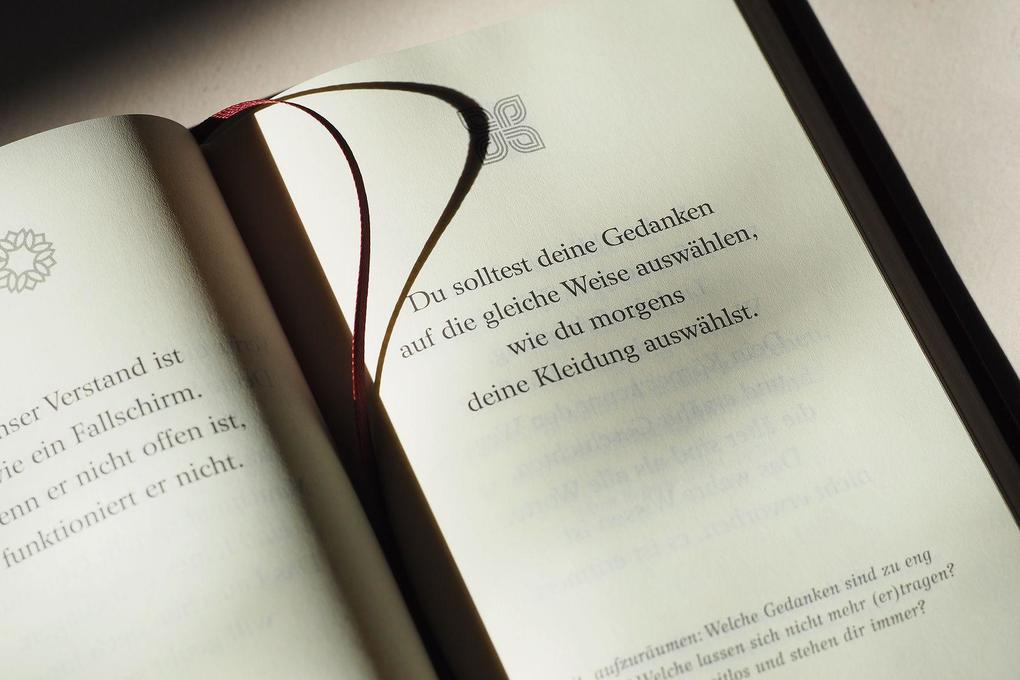 Verstand ist
ein Fallschirm.
er nicht offen ist,
funktioniert er nicht.
Du solltest deine Gedanken
auf die gleiche Weise auswählen,
wie du morgens
deine Kleidung auswählst.
aufzuräumen: Welche Gedanken sind zu eng
Welche lassen sich nicht mehr (er)tragen?
und stehen dir immer?